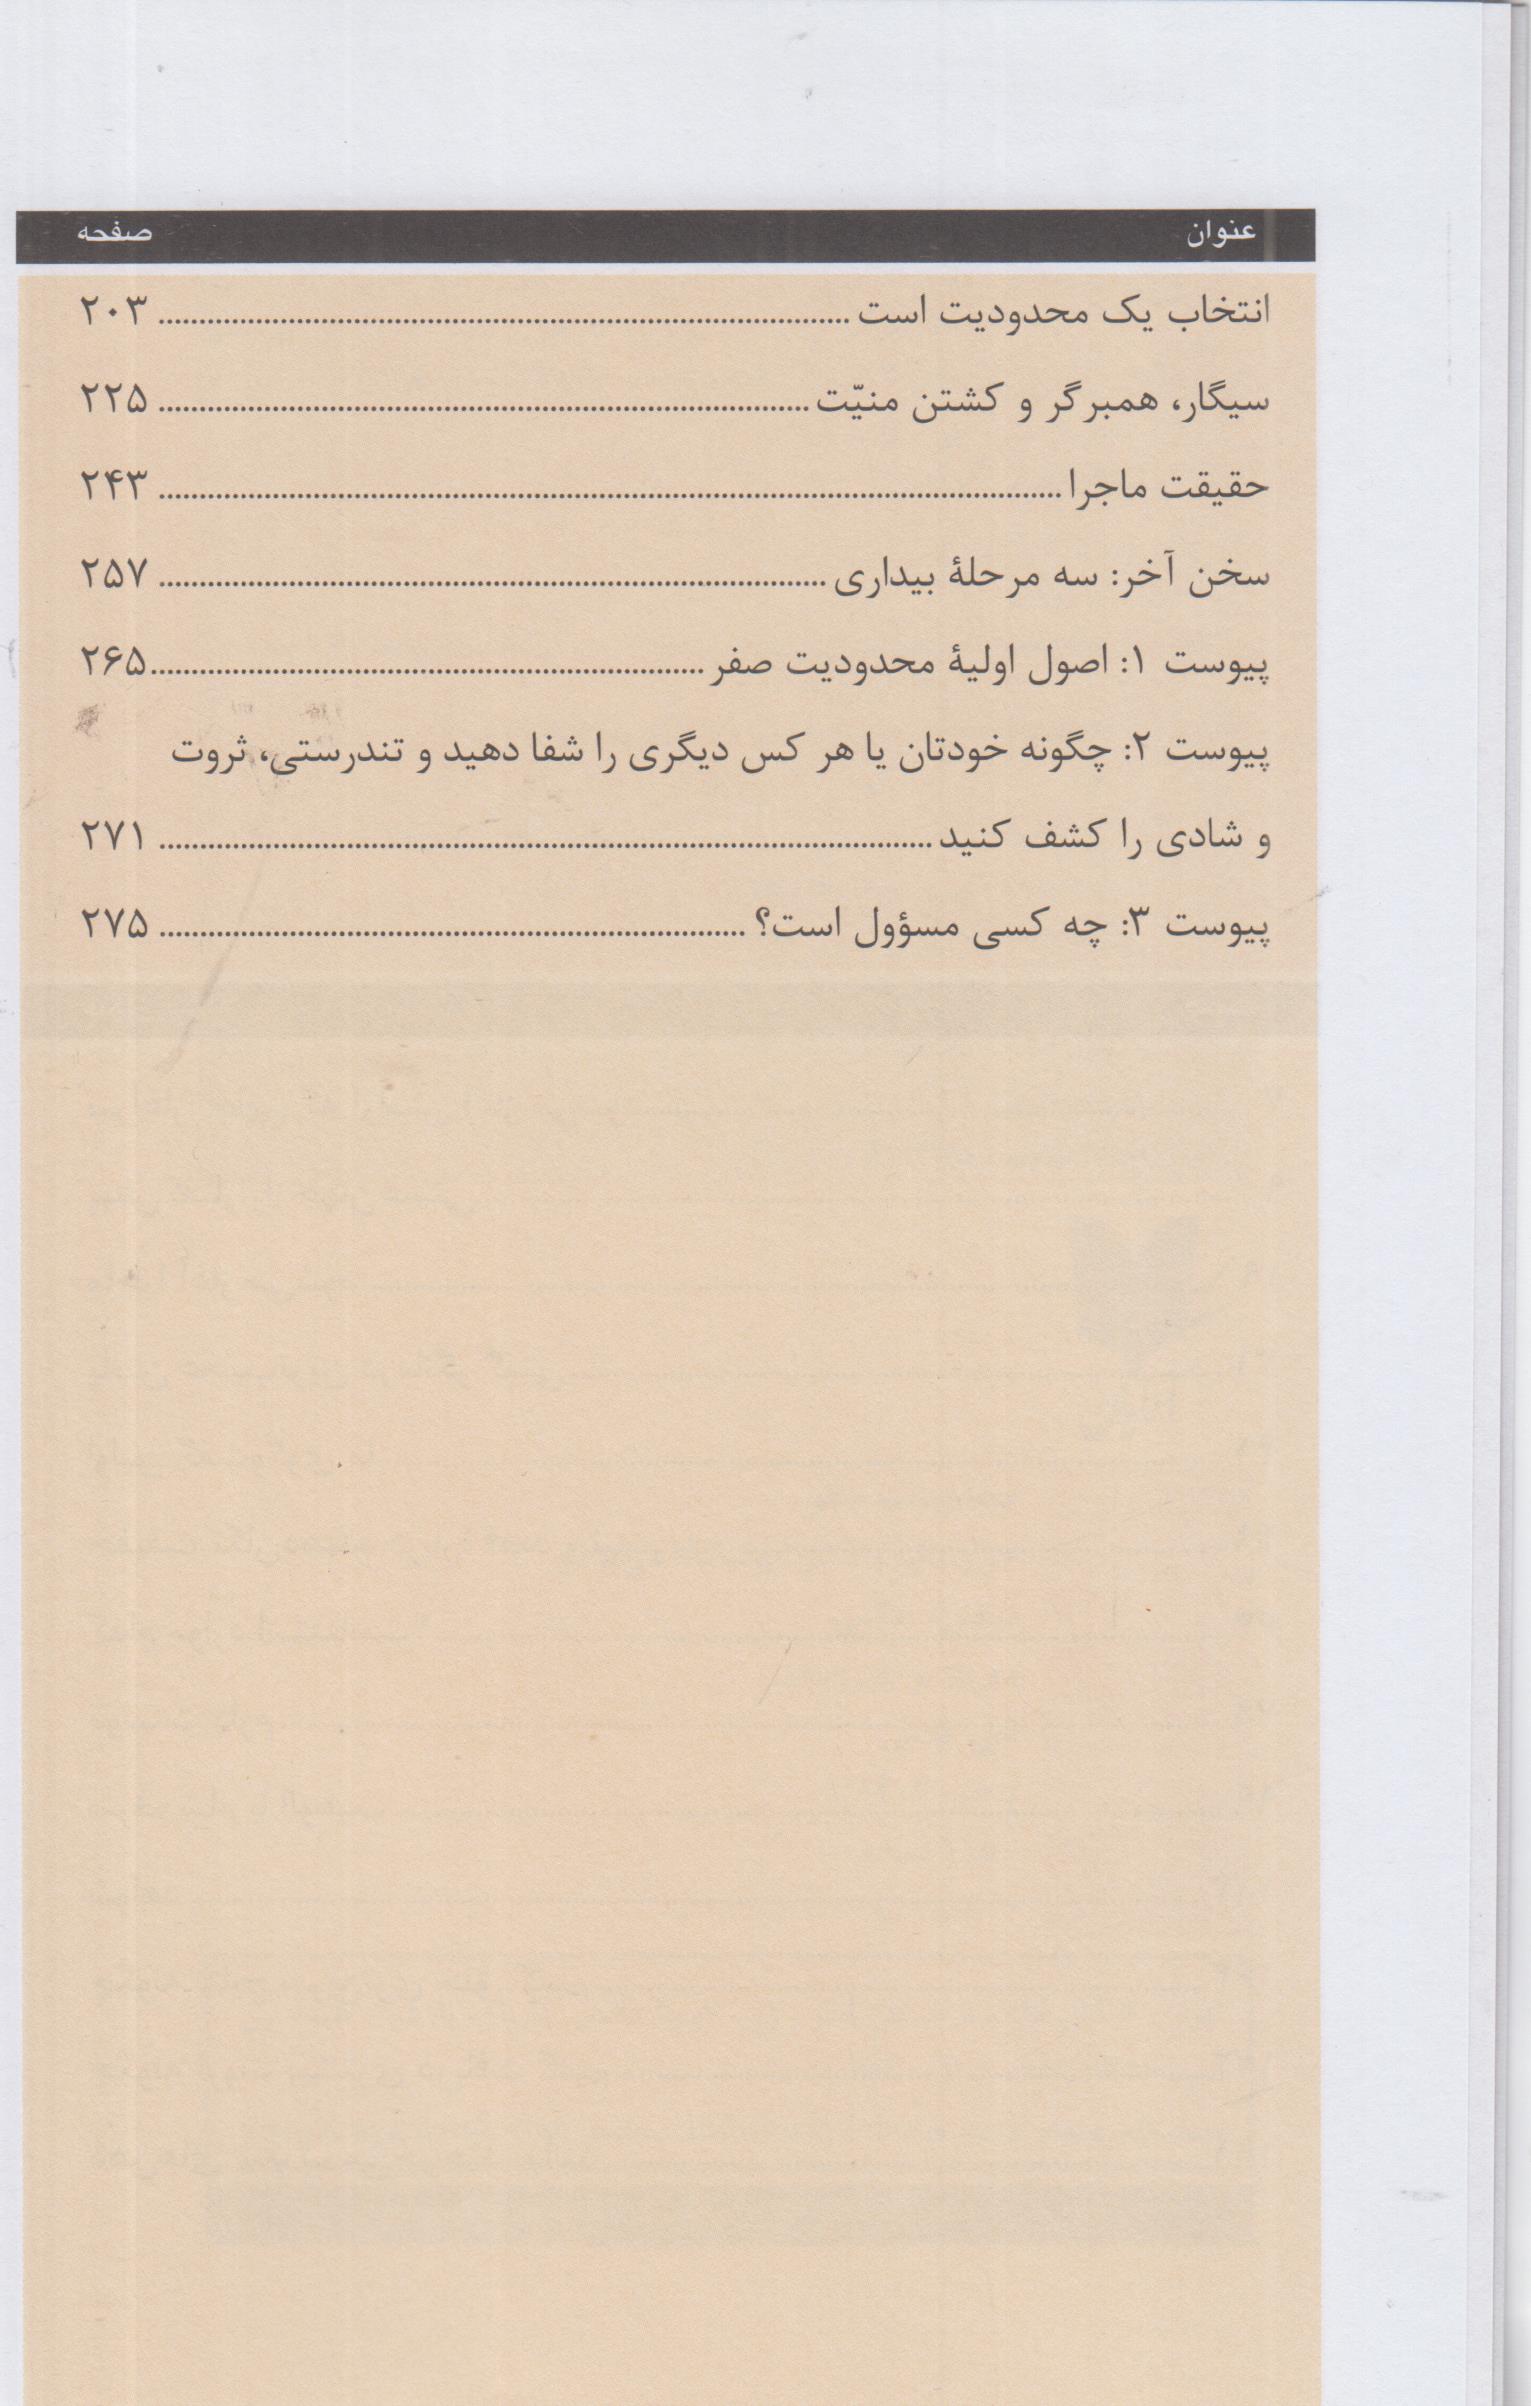 عنوان صفحه
انتخاب یک محدودیت است ........................................ ۲۰۳
سیگار، همبرگر و کشتن منیّت ........................................ ۲۲۵
حقیقت ماجرا ........................................ ۲۴۳
سخن آخر: سه مرحلهٔ بیداری ........................................ ۲۵۷
پیوست ۱: اصول اولیهٔ محدودیت صفر ........................................ ۲۶۵
پیوست ۲: چگونه خودتان یا هر کس دیگری را شفا دهید و تندرستی، ثروت
و شادی را کشف کنید ........................................ ۲۷۱
پیوست ۳: چه کسی مسؤول است؟ ........................................ ۲۷۵